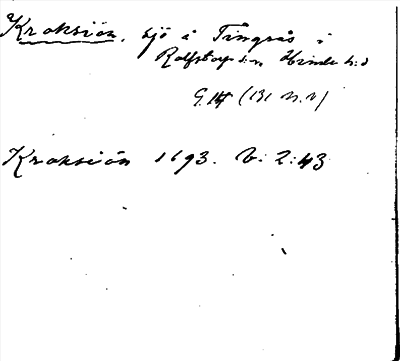 Kroksiön, sjö i Tingsås i
Rolfstorps sn Himle hd
G.K (131 n.v)
Kroksiön 1693. V: 2:43